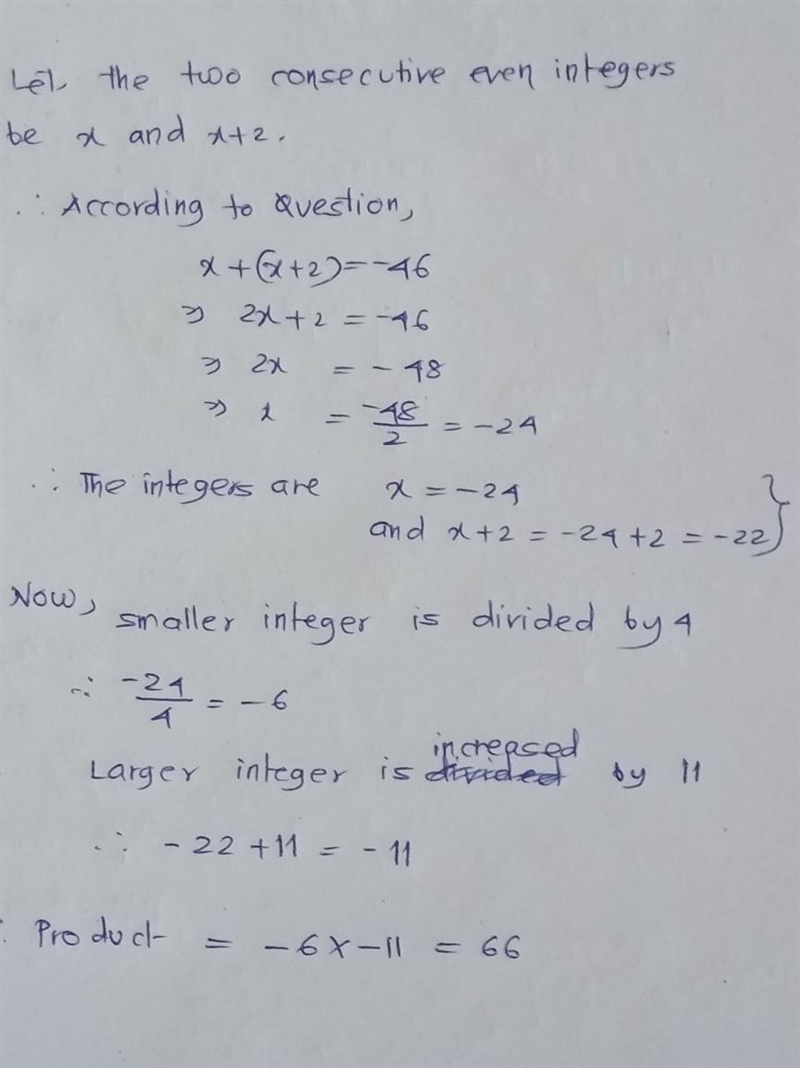 Let the two consecutive even integers
be x and x+2.
∴ According to Question,
x+(x+2)=-46
⇒ 2x+2 = -46
⇒ 2x = -48
⇒ x = -48/2 = -24
∴ The integers are x = -24
and x+2 = -24+2 = -22}
Now, smaller integer is divided by 4
∴ -24/4 = -6
Larger integer is ~~divided~~ increased by 11
∴ -22+11 = -11
∴ Product = -6x-11 = 66